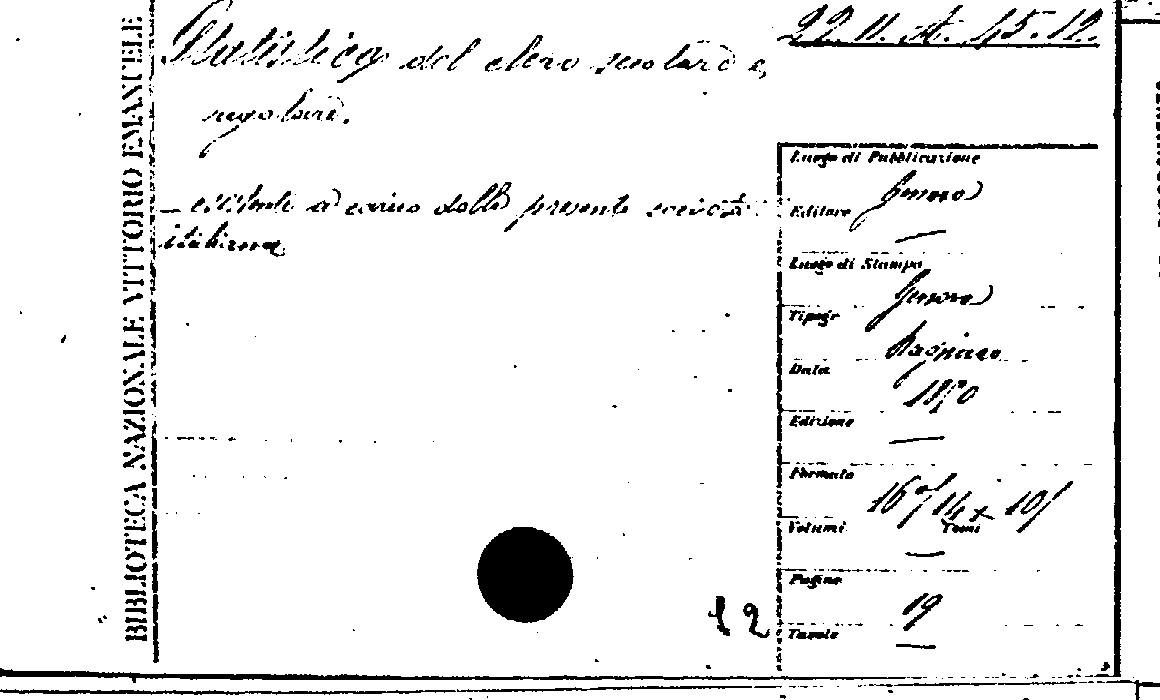 BIBLIOTECA NAZIONALE VITTORIO EMANUELE
22. 11. A. 45.12.
Statistica del clero secolare e
regolare.
— esistente a carico della presente società
italiana
Luogo di Pubblicazione
Genova
Editore —
Luogo di Stampa
Genova
Tipogr
Data
1870
Edizione —
Formato
16°/14 x 10/
Volumi — Tomi
Pagine
19
Tavole —
12